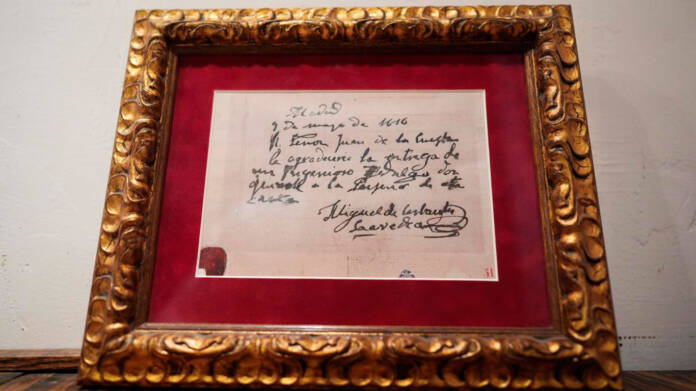 Madrid
9 de mayo de 1616
Señor Juan de la Cuesta
le agradeceré la entrega de
un Ingenioso Hidalgo don
a la de
carta
Miguel de Cerbantes
Saavedra
51